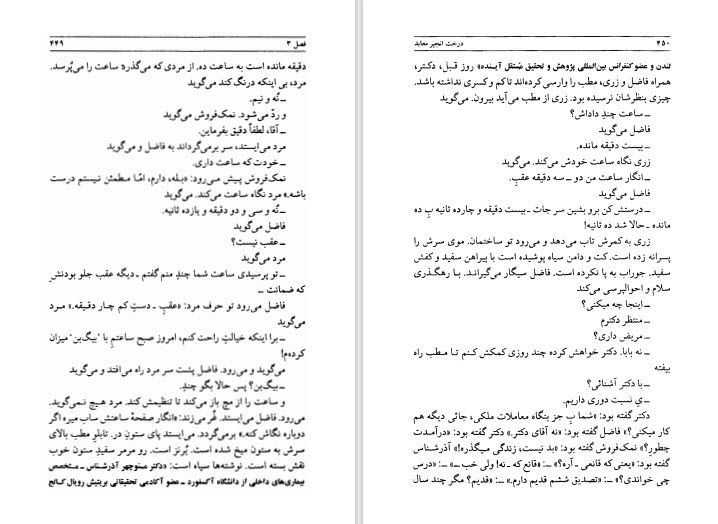 فصل ۳
۴۴۹
دقیقه مانده است به ساعت ده. از مردی که می‌گذرد ساعت را می‌پُرسد.
مرد، بی اینکه درنگ کند می‌گوید
ـ نُه و نیم.
و ردّ می‌شود. نمک‌فروش می‌گوید
ـ آقا، لطفاً دقیق بفرماین.
مرد می‌ایستد، سر برمی‌گرداند به فاضل و می‌گوید
ـ خودت که ساعت داری.
نمک‌فروش پیش می‌رود: «بـله، دارم، امّا مـطمئن نیستم درست
باشه.» مرد نگاه ساعت می‌کند. می‌گوید
ـ نُه و سی و دو دقیقه و یازده ثانیه.
فاضل می‌گوید
ـ عقب نیست؟
مرد می‌گوید
ـ تو پرسیدی ساعت شما چندِ منم گفتم ـ دیگه عقب جلو بودنش
که ضمانت ـ
فاضل می‌رود تو حرف مرد: «عقبِ ـ دستِ کم چـار دقیقه.» مـرد
می‌گوید
ـ برا اینکه خیالتِ راحت کنم، امروز صبح ساعتمِ با "بیگ‌بن" میزان
کرده‌م!
می‌گوید و می‌رود. فاضل پشت سر مرد راه می‌افتد و می‌گوید
ـ بیگ‌بن؟ پس حالا بگو چندِ.
و ساعت را از مچ باز می‌کند تا تنظیمش کند. مرد هیچ نمی‌گوید.
می‌رود. فاضل می‌ایستد. قُر می‌زند: «انگار صفحهٔ ساعتش ساب میره اگر
دوباره نگاش کنه.» برمی‌گردد. می‌ایستد پای ستون در. تابلو مطب بالای
سرش به ستون میخ شده است. بُرنز است. رو مرمر سفیدِ ستون خوب
نقش بسته است. نوشته‌ها سیاه است: «دکتر منوچهر آذرشناس ـ متخصص
بیماری‌های داخلی از دانشگاه آکسفورد ـ عضو آکادمی تحقیقاتی بریتیش رویال کالج
۴۵۰
درخت انجیر معابد
لندن و عضو کنفرانس بین‌المللی پژوهش و تحقیق مُستقل آیـنده» روز قبـل، دکـتر،
همراه فاضل و زری، مطب را وارسی کرده‌اند تا کم و کسری نداشته باشد.
چیزی بنظرشان نرسیده بود. زری از مطب می‌آید بیرون. می‌گوید
ـ ساعت چندِ داداش؟
فاضل می‌گوید
ـ بیست دقیقه مانده.
زری نگاه ساعت خودش می‌کند. می‌گوید
ـ انگار ساعت من دو ـ سه دقیقه عقبِ.
فاضل می‌گوید
ـ درستش کن برو بشین سر جات ـ بیست دقیقه و چارده ثانیه بِ ده
مانده ـ حالا شد ده ثانیه!
زری به کمرش تاب می‌دهد و می‌رود تو ساختمان. موی سرش را
پسرانه زده است. کت و دامن سیاه پوشیده است با پیراهن سفید و کفش
سفید. جوراب به پا نکرده است. فاضل سیگار می‌گیرانـد. بـا رهگـذری
سلام و احوالپرسی می‌کند
ـ اینجا چه میکنی؟
ـ منتظر دکترم
ـ مریض داری؟
ـ نه بابا. دکتر خواهش کرده چند روزی کمکش کنـم تـا مـطب راه
بیفته
ـ با دکتر آشنائی؟
ـ یِ نسبت دوری داریم.
دکتر گفته بود: «شما بِ جز بنگاه معاملات ملکی، جائی دیگه هم
کار میکنی؟» فاضل گفته بود: «نه آقای دکتر.» دکتر گفته بود: «درآمـدت
چطورِ؟» نمک‌فروش گفته بود: «بد نیست، زندگی میگذره!» آذرشناس
گفته بود: «یعنی که قانعی ـ آره؟» ـ: «قانع که ـ نه! ولی خب ـ» ـ: «درس
چی خواندی؟» ـ: «تصدیق ششم قدیم دارم.» ـ: «قدیم؟ مگر چند سال